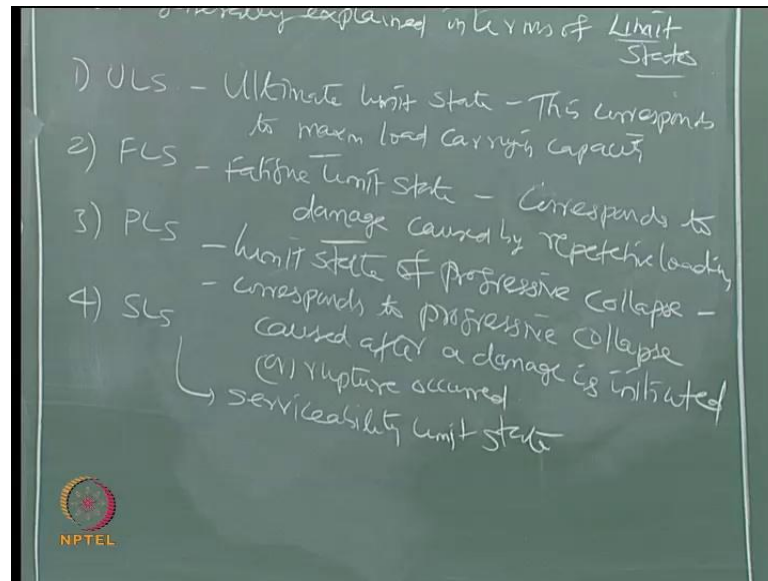 generally explained in terms of Limit
States
1) ULS - Ultimate limit state - This corresponds
to maxm load carrying capacity
2) FLS - Fatigue limit state - Corresponds to
damage caused by repetetive loading
3) PLS - Limit state of progressive collapse -
- corresponds to progressive collapse
caused after a damage is initiated
(or) rupture occurred
4) SLS
→ serviceability limit state
NPTEL